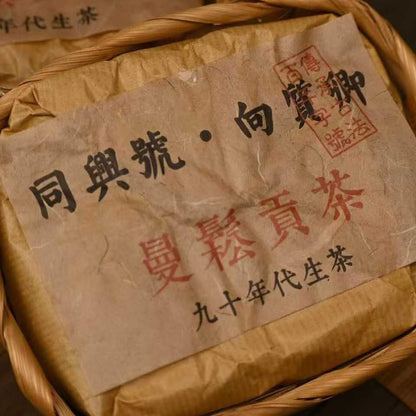 年代生茶
同興號·向質卿
傳承古法
曼鬆貢茶
九十年代生茶